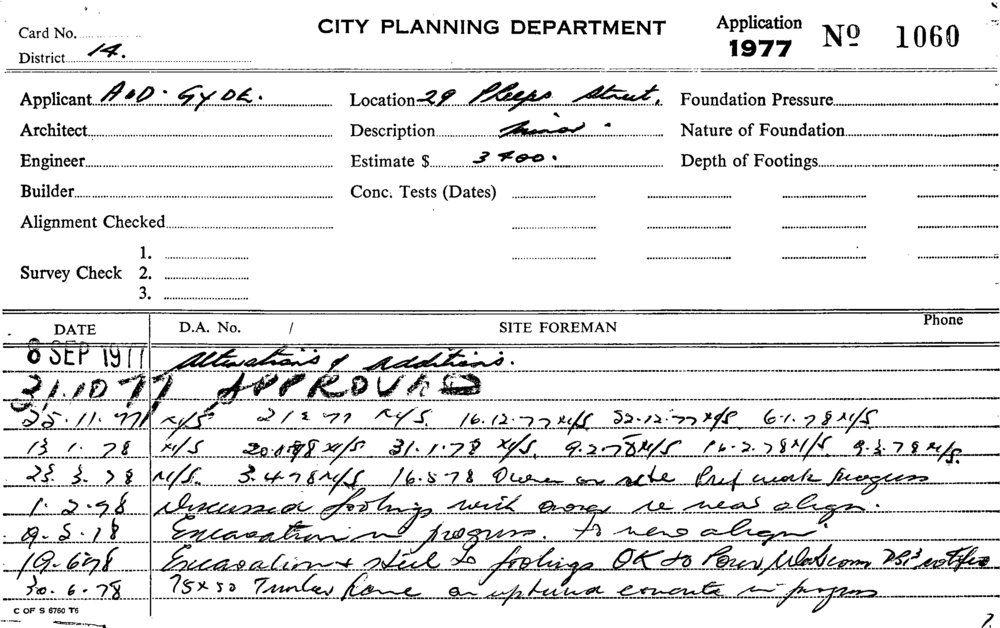 Card No. CITY PLANNING DEPARTMENT Application
District 14. 1977 Nº 1060
Applicant A & D. GYDE. Location 29 Phelps Street, Foundation Pressure
Architect Description minor. Nature of Foundation
Engineer Estimate $ 3400. Depth of Footings
Builder Conc. Tests (Dates)
Alignment Checked
1.
Survey Check 2.
3.
DATE D.A. No. / SITE FOREMAN Phone
8 SEP 1977 Alterations & additions.
31.10 77 APPROVED
25.11.77 N/S 77 N/S. 16.12.77 N/S 22.12.77 N/S. 6.1.78 N/S
13 1. 78 N/S N/S. 31.1.78 N/S. 9.2.78 N/S 16.2.78 N/S. 9.3.78 N/S.
23. 3. 78 N/S. 3.4.78 N/S. 16.5.78 Owner on site Prel work progress
78 Discussed footings with owner re new align.
78 Excavation in progress. to new align
19.6.78 Excavation & steel to footings OK to Pour
30.6.78 75x50 Timber concrete in progress
C OF S 6760 T6